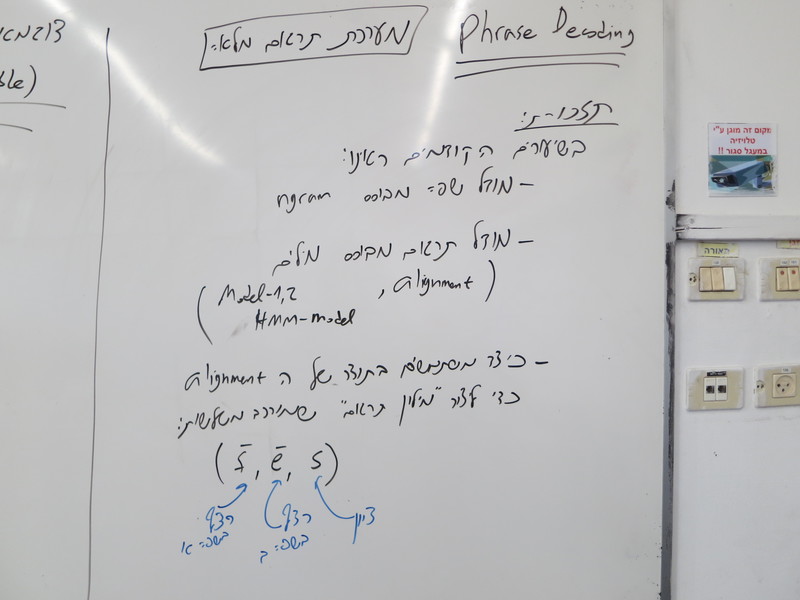 Phrase Decoding
מערכת תרגום מלאה
תזכורת:
בשיעורים הקודמים ראינו:
– מודל שפה מבוסס ngram
– מודל תרגום מבוסס מילים
(Model-1,2 , alignment)
HMM-model
– כיצד משתמשים בתוצר של ה alignment
כדי ליצור "מילון תרגום" שמורכב משלשות:
(f̄, ē, s)
רצף בשפה א'
רצף בשפה ב
ציון
מקום זה מוגן ע"י
טלויזיה
במעגל סגור !!
תאורה